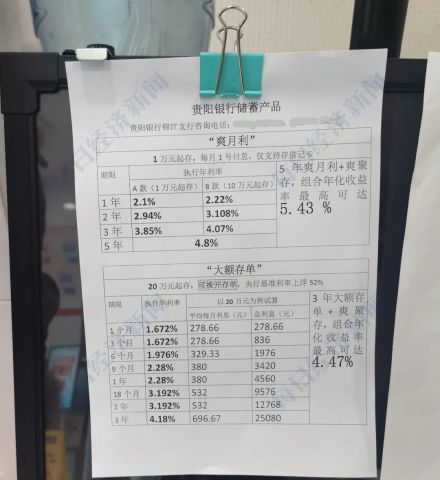 贵阳银行储蓄产品
贵阳银行锦江支行咨询电话:
“爽月利”
1 万元起存，每月 1 号付息，仅支持存借记卡
期限 执行年利率
A 款（1 万元起存） B 款（10 万元起存）
1 年 2.1% 2.22%
2 年 2.94% 3.108%
3 年 3.85% 4.07%
5 年 4.8%
5 年爽月利+爽聚
存，组合年化收益
率最高可达
5.43 %
“大额存单”
20 万元起存，可换开存单，央行基准利率上浮 52%
期限 执行年利率 以 20 万元为例试算
平均每月利息（元） 总利息（元）
1 个月 1.672% 278.66 278.66
3 个月 1.672% 278.66 836
6 个月 1.976% 329.33 1976
9 个月 2.28% 380 3420
1 年 2.28% 380 4560
18 个月 3.192% 532 9576
2 年 3.192% 532 12768
3 年 4.18% 696.67 25080
3 年大额存
单 + 爽聚
存，组合年
化收益率
最高可达
4.47%
每日经济新闻